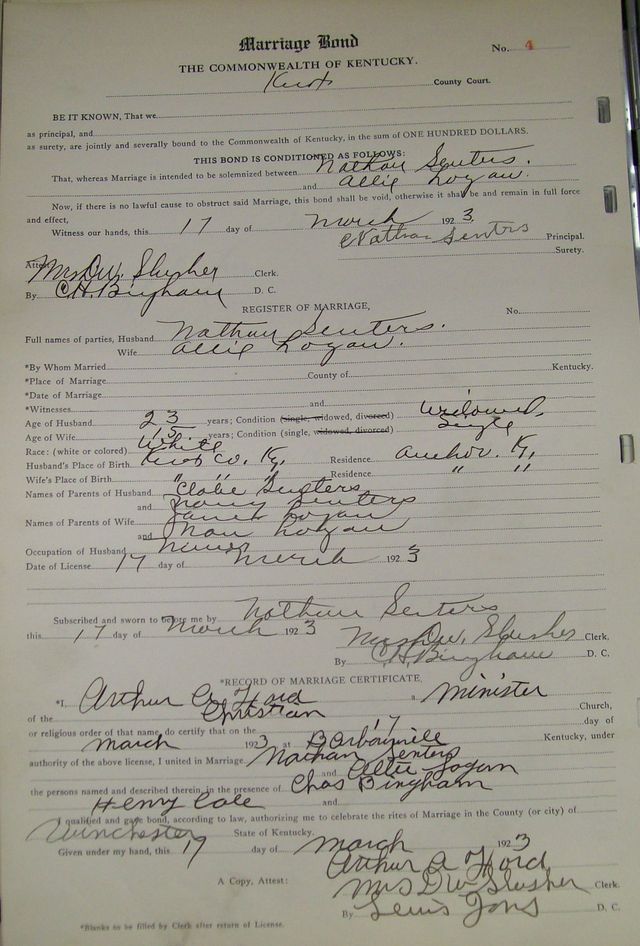 Marriage Bond
No. 4
THE COMMONWEALTH OF KENTUCKY.
Knox County Court.
BE IT KNOWN, That we
as principal, and
as surety, are jointly and severally bound to the Commonwealth of Kentucky, in the sum of ONE HUNDRED DOLLARS.
THIS BOND IS CONDITIONED AS FOLLOWS:
That, whereas Marriage is intended to be solemnized between Nathan Senters.
and Allie Logan.
Now, if there is no lawful cause to obstruct said Marriage, this bond shall be void, otherwise it shall be and remain in full force
and effect,
Witness our hands, this 17 day of March 1923.
Nathan Senters Principal.
Surety.
Attest Mrs D.W. Slusher Clerk.
By C.H. Bingham D. C.
REGISTER OF MARRIAGE, No.
Full names of parties, Husband Nathan Senters.
Wife Allie Logan.
*By Whom Married
*Place of Marriage County of Kentucky.
*Date of Marriage
*Witnesses and
Age of Husband 23 years; Condition (single, widowed, divorced) Widowed,
Age of Wife 15 years; Condition (single, widowed, divorced) Single
Race: (white or colored) White
Husband's Place of Birth Knox Co. Ky, Residence Anchor. Ky,
Wife's Place of Birth " " " Residence " "
Names of Parents of Husband Senters
and Senters
Names of Parents of Wife Logan
and Logan
Occupation of Husband Miner
Date of License 17 day of March 1923
Subscribed and sworn to before me by Nathan Senters
this 17 day of March 1923
Mrs D.W. Slusher Clerk,
By C.H. Bingham D. C.
*RECORD OF MARRIAGE CERTIFICATE.
*I, Arthur A Ford a Minister
of the Christian Church,
or religious order of that name, do certify that on the 17 day of
March 1923 at Barbourville Kentucky, under
authority of the above license, I united in Marriage Nathan Senters
and Allie Logan
the persons named and described therein, in the presence of Chas Bingham
Henry Cole and
I qualified and gave bond, according to law, authorizing me to celebrate the rites of Marriage in the County (or city) of
Winchester State of Kentucky.
Given under my hand, this 17 day of March 1923
Arthur A Ford
A Copy, Attest: Mrs D W Slusher Clerk.
By Lewis D. C.
*Blanks to be filled by Clerk after return of License.